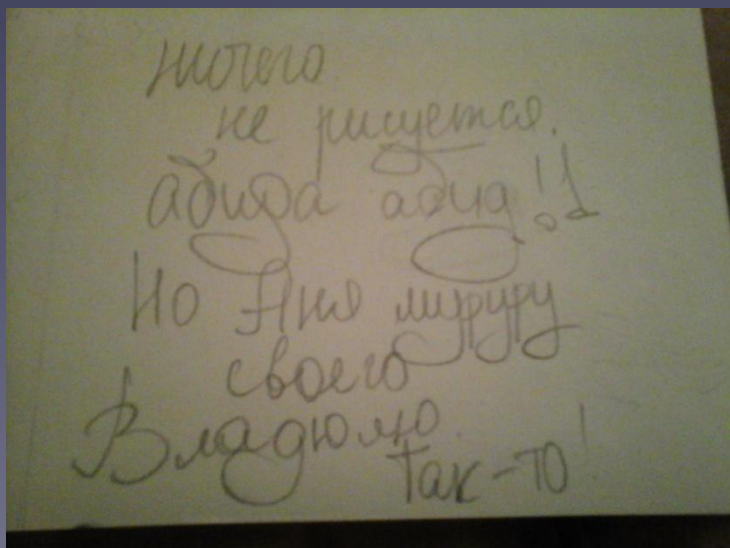 ничего
не рисуется.
абида абид!1
Но Аня муруру
своего
Владюлю
так-то!